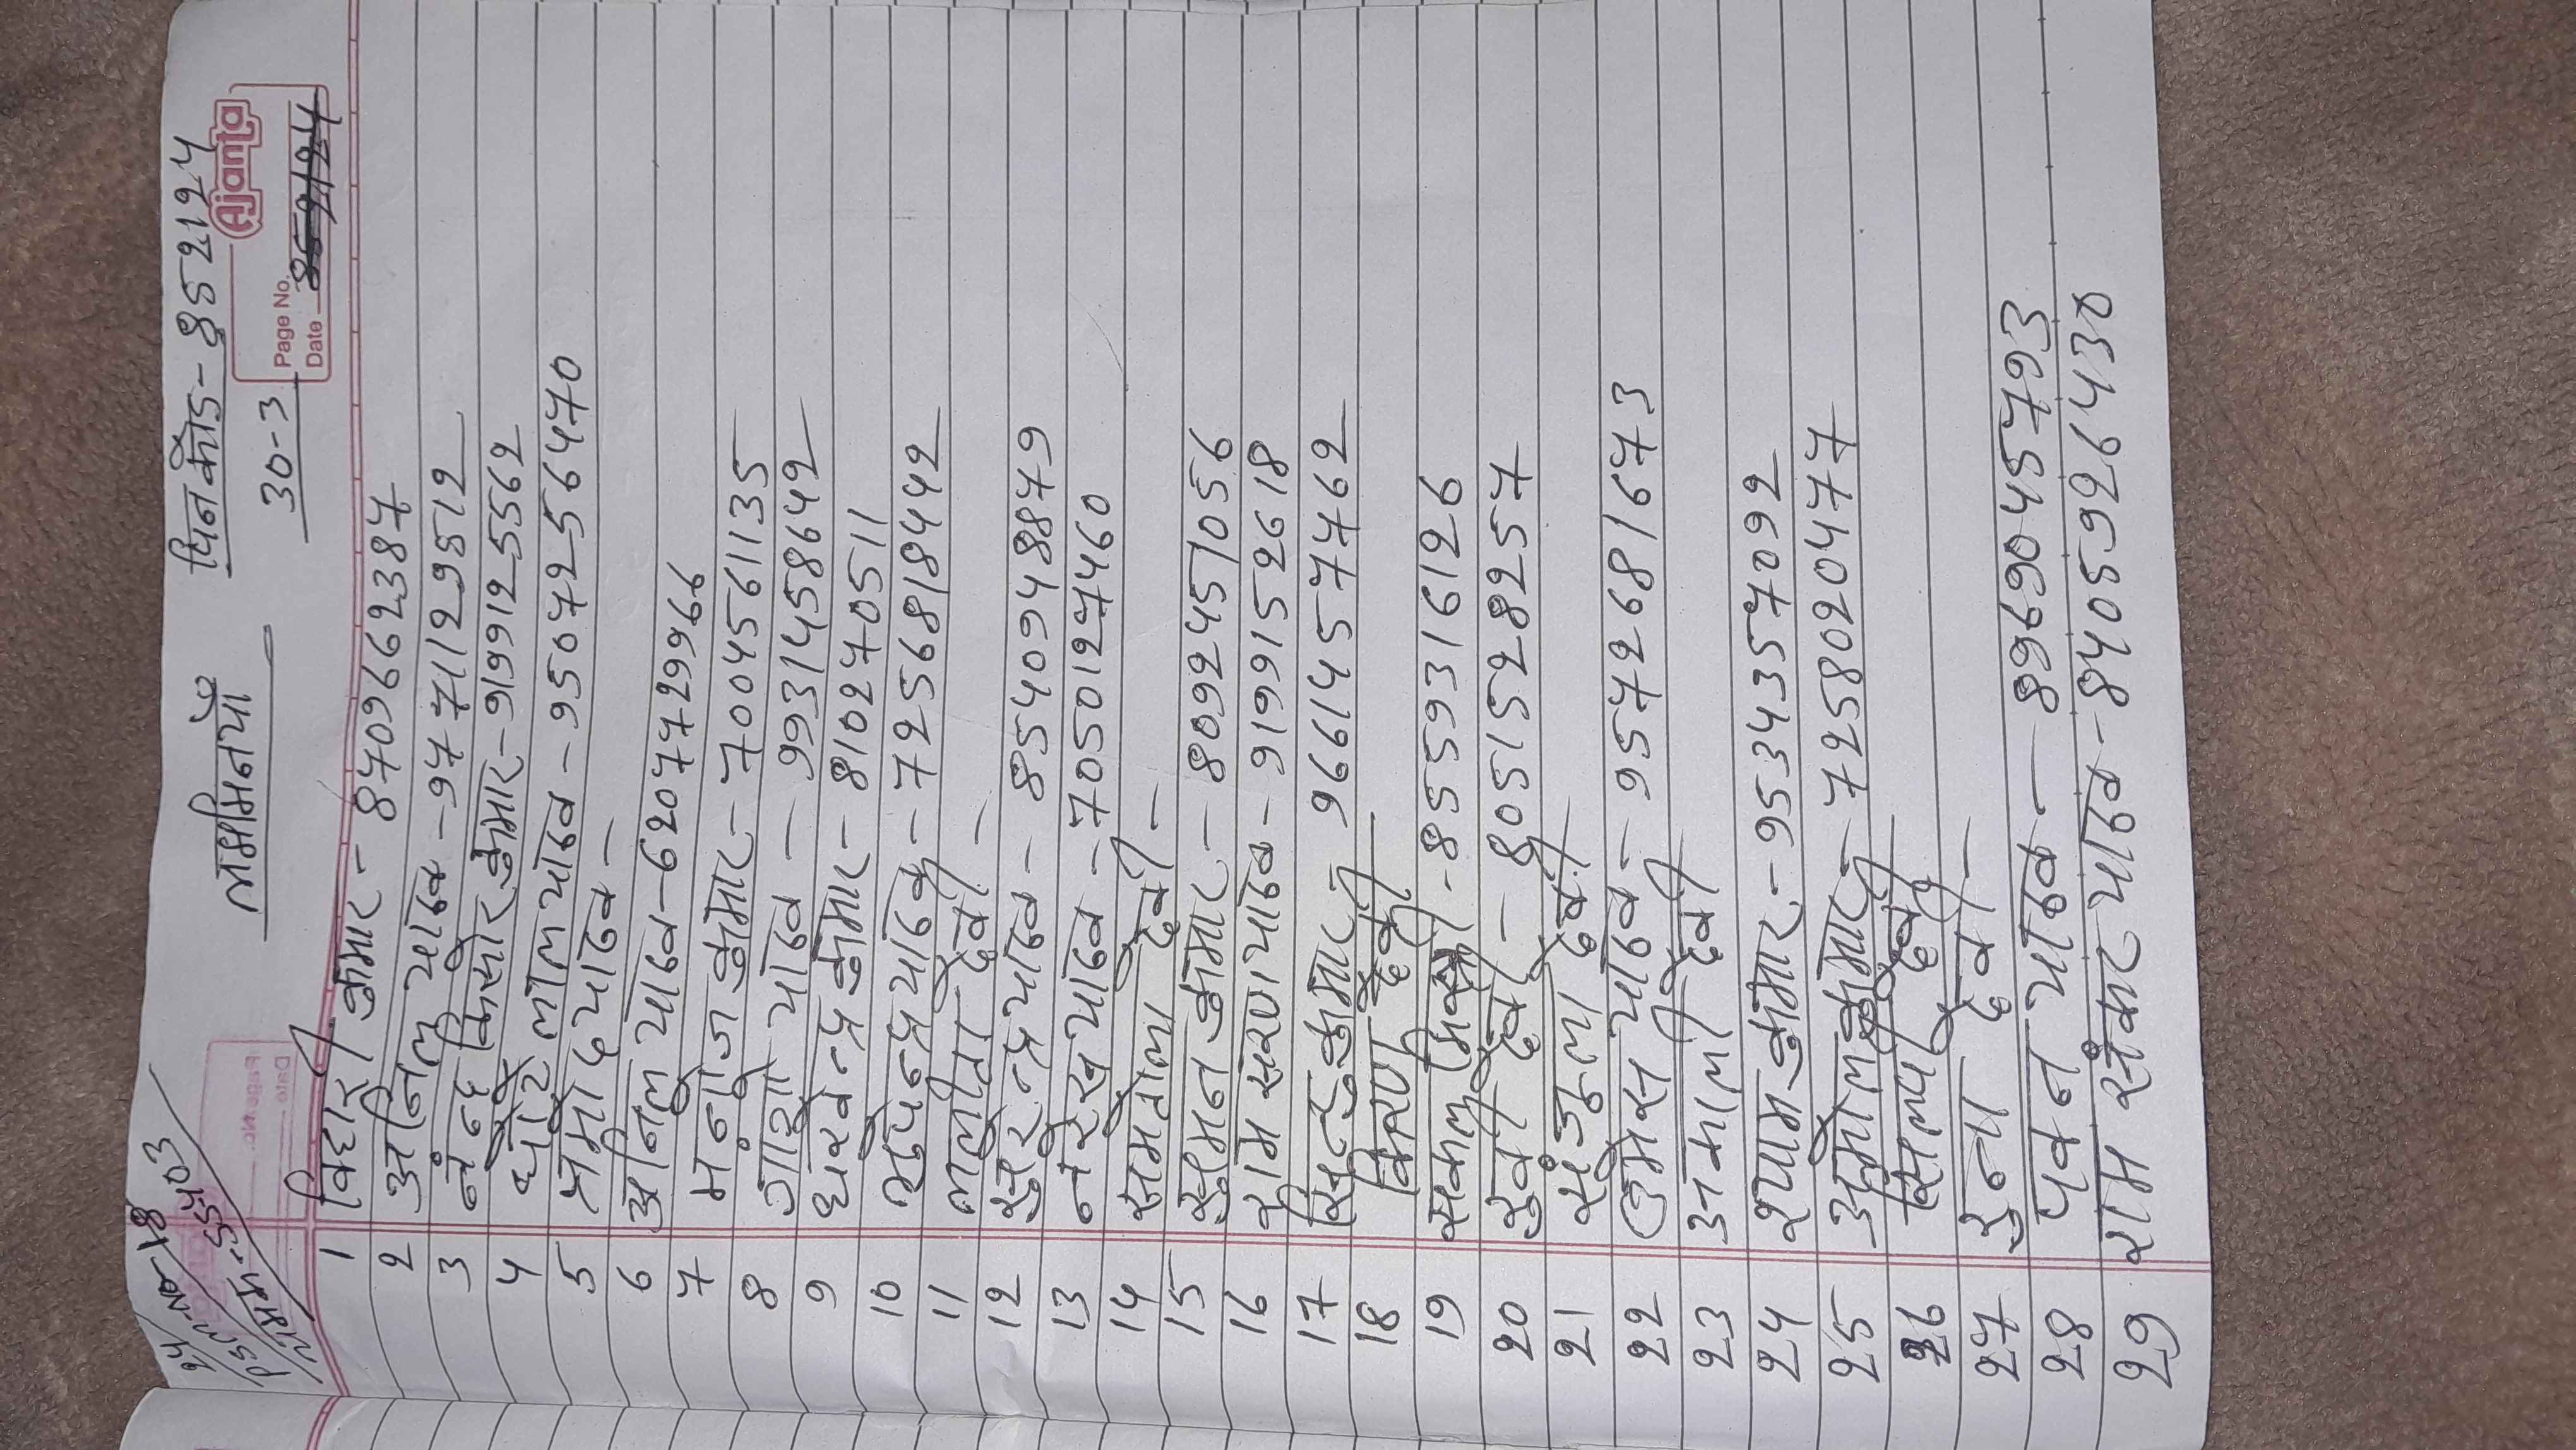 लभमिनयाँ पिनकोड-852124
30-3
Ajanta
Page No.
Date
1 विहारी कुमार - 8709662387
2 अनिल यादव - 9771129512
3 नंद किसोर कुमार - 9199125562
4 छोटे लाल यादव - 9507256470
5 प्रमोद यादव -
6 अनिल यादव - 6207729966
7 मनोज कुमार - 7004561135
8 गंगा यादव - 9931458642
9 धरवेन्द्र कुमार - 8102470511
10 भुपेन्द्र यादव - 7256818442
11 ललीता देवी -
12 सुरेन्द्र यादव - 8540948879
13 नरेस यादव - 7050127460
14 समतोला देवी -
15 सुमन कुमार - 8092451056
16 राम सरण यादव - 9199152618
17 सिन्टु कुमार 9661457462
18 किरण देवी
19 सकल - 8559316126
20 देवी - 8051528257
21 संजुला देवी
22 उमेस यादव - 9572681673
23 देवी
24 श्याम कुमार - 9534357092
25 अमोल कुमार - 7258020477
26 सिल्पी देवी
27 देवी -
28 पवन यादव - 8969045793
29 राम संकर यादव - 8405926430